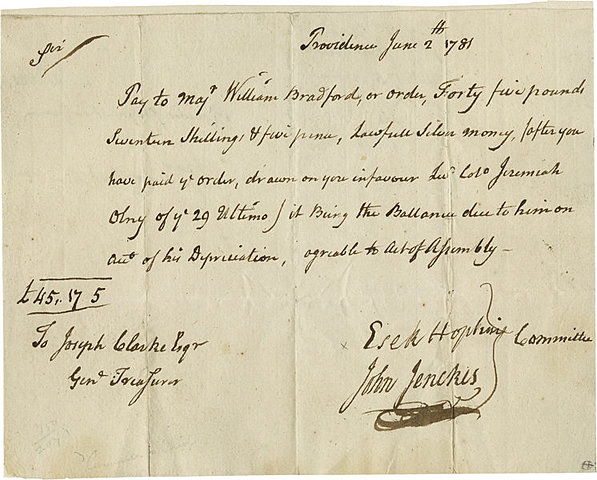 Providence June 2th 1781
Sir
Pay to Majr William Bradford, or order, Forty five pounds
Seventeen Shillings & five pence, Lawfull Silver money, (after you
have paid ye order, drawn on you in favour Leut Colo Jeremiah
Olny of ye 29 Ultimo) it Being the Ballance due to him on
acct of his Depreciation, agreable to Act of Assembly —
£45,, 17 5
To Joseph Clarke Esqr
Genl Treasurer
Esek Hopkins
John Jenckes
Committee